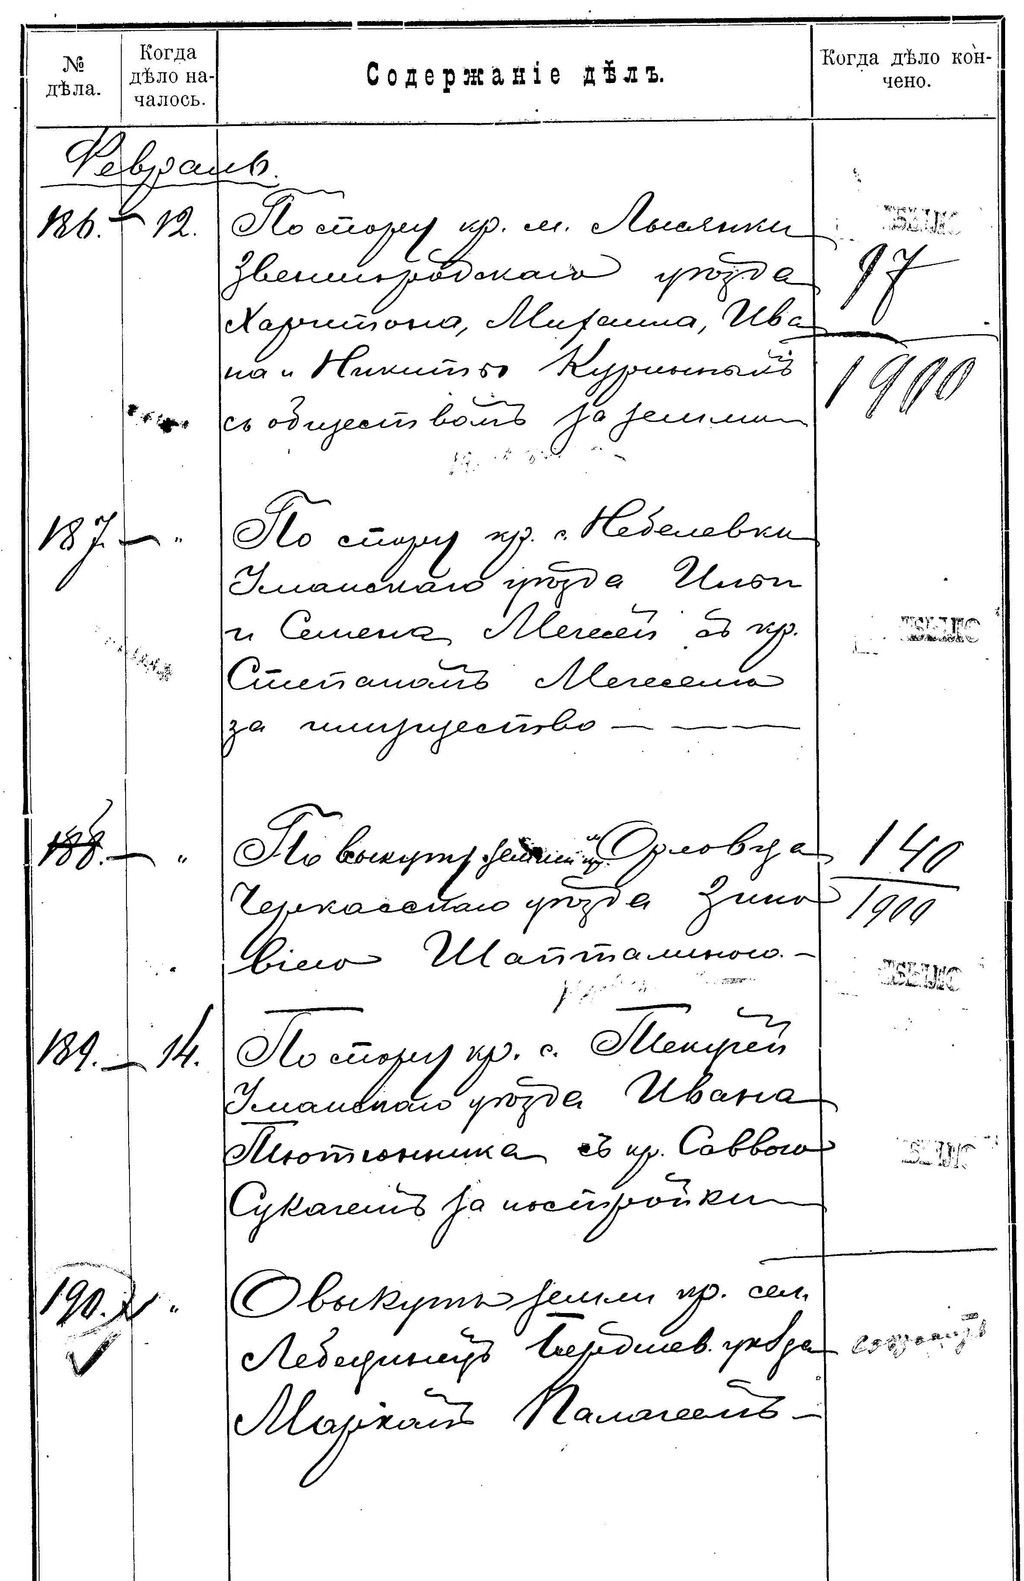 № дѣла.
Когда дѣло на-
чалось.
Содержаніе дѣлъ.
Когда дѣло кон-
чено.
Февраль.
186. — 12. По спору кр. м. Лысянки
Звенигородскаго уѣзда
Харитона, Михаила, Ива
на и Никиты Куринныхъ
съ обществомъ за землю
97
1900
187. — " По спору кр. с. Небелевки
Уманскаго уѣзда Ильи
и Семена съ кр.
Степаномъ
за имущество — — —
188. — " По выкупу земли кр. м. Орловца
Черкасскаго уѣзда Зино
віею Шапталиного. —
140
1900
189. — 14. По спору кр. с. Текучей
Уманскаго уѣзда Ивана
Тютюнника съ кр. Саввою
Сукачемъ за постройки
190. " О выкупѣ земли кр. сел.
Лебединецъ Бердичев. уѣзда
Маркомъ Паламъ —